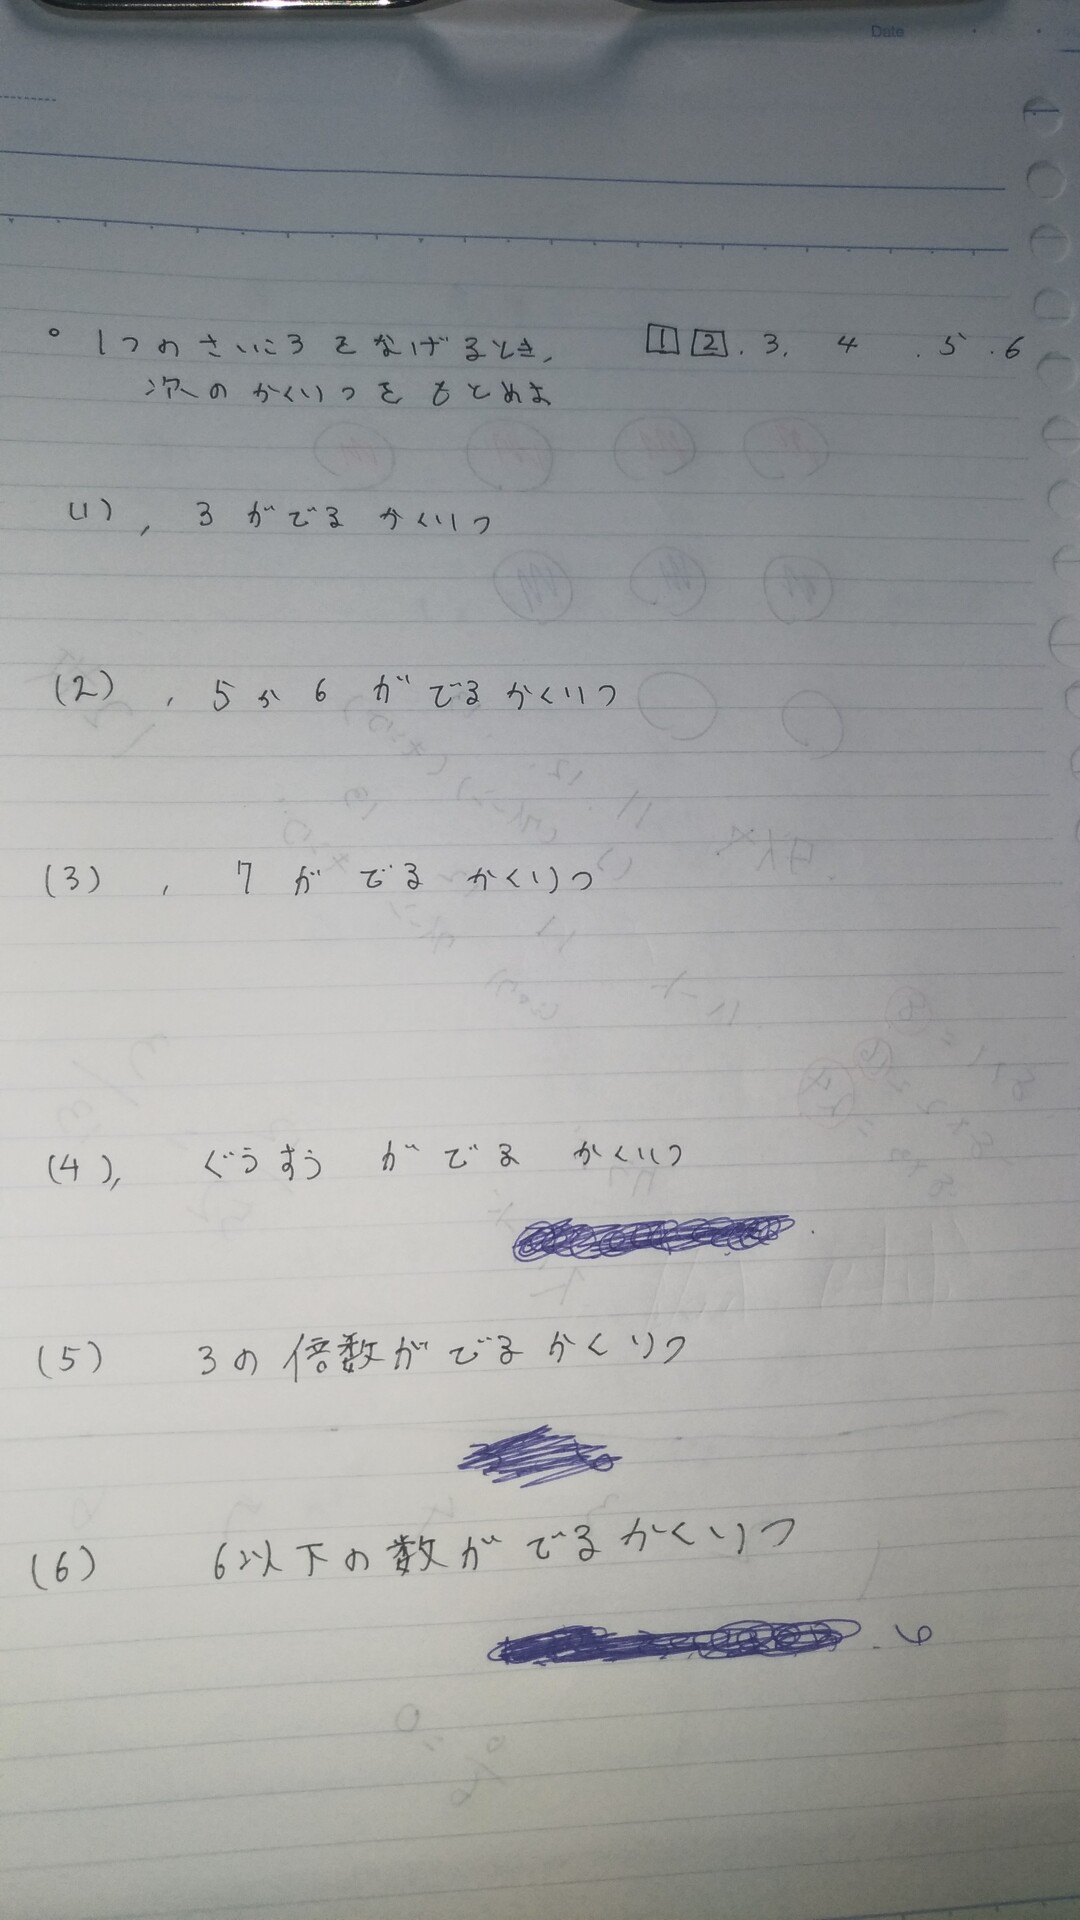 Date
。1つのさいころをなげるとき、
1 2 . 3. 4 . 5 . 6
次のかくりつをもとめよ
(1), 3がでるかくりつ
(2), 5か6がでるかくりつ
(3), 7がでるかくりつ
(4), ぐうすうがでるかくりつ
(5) 3の倍数がでるかくりつ
(6) 6以下の数がでるかくりつ
. 6